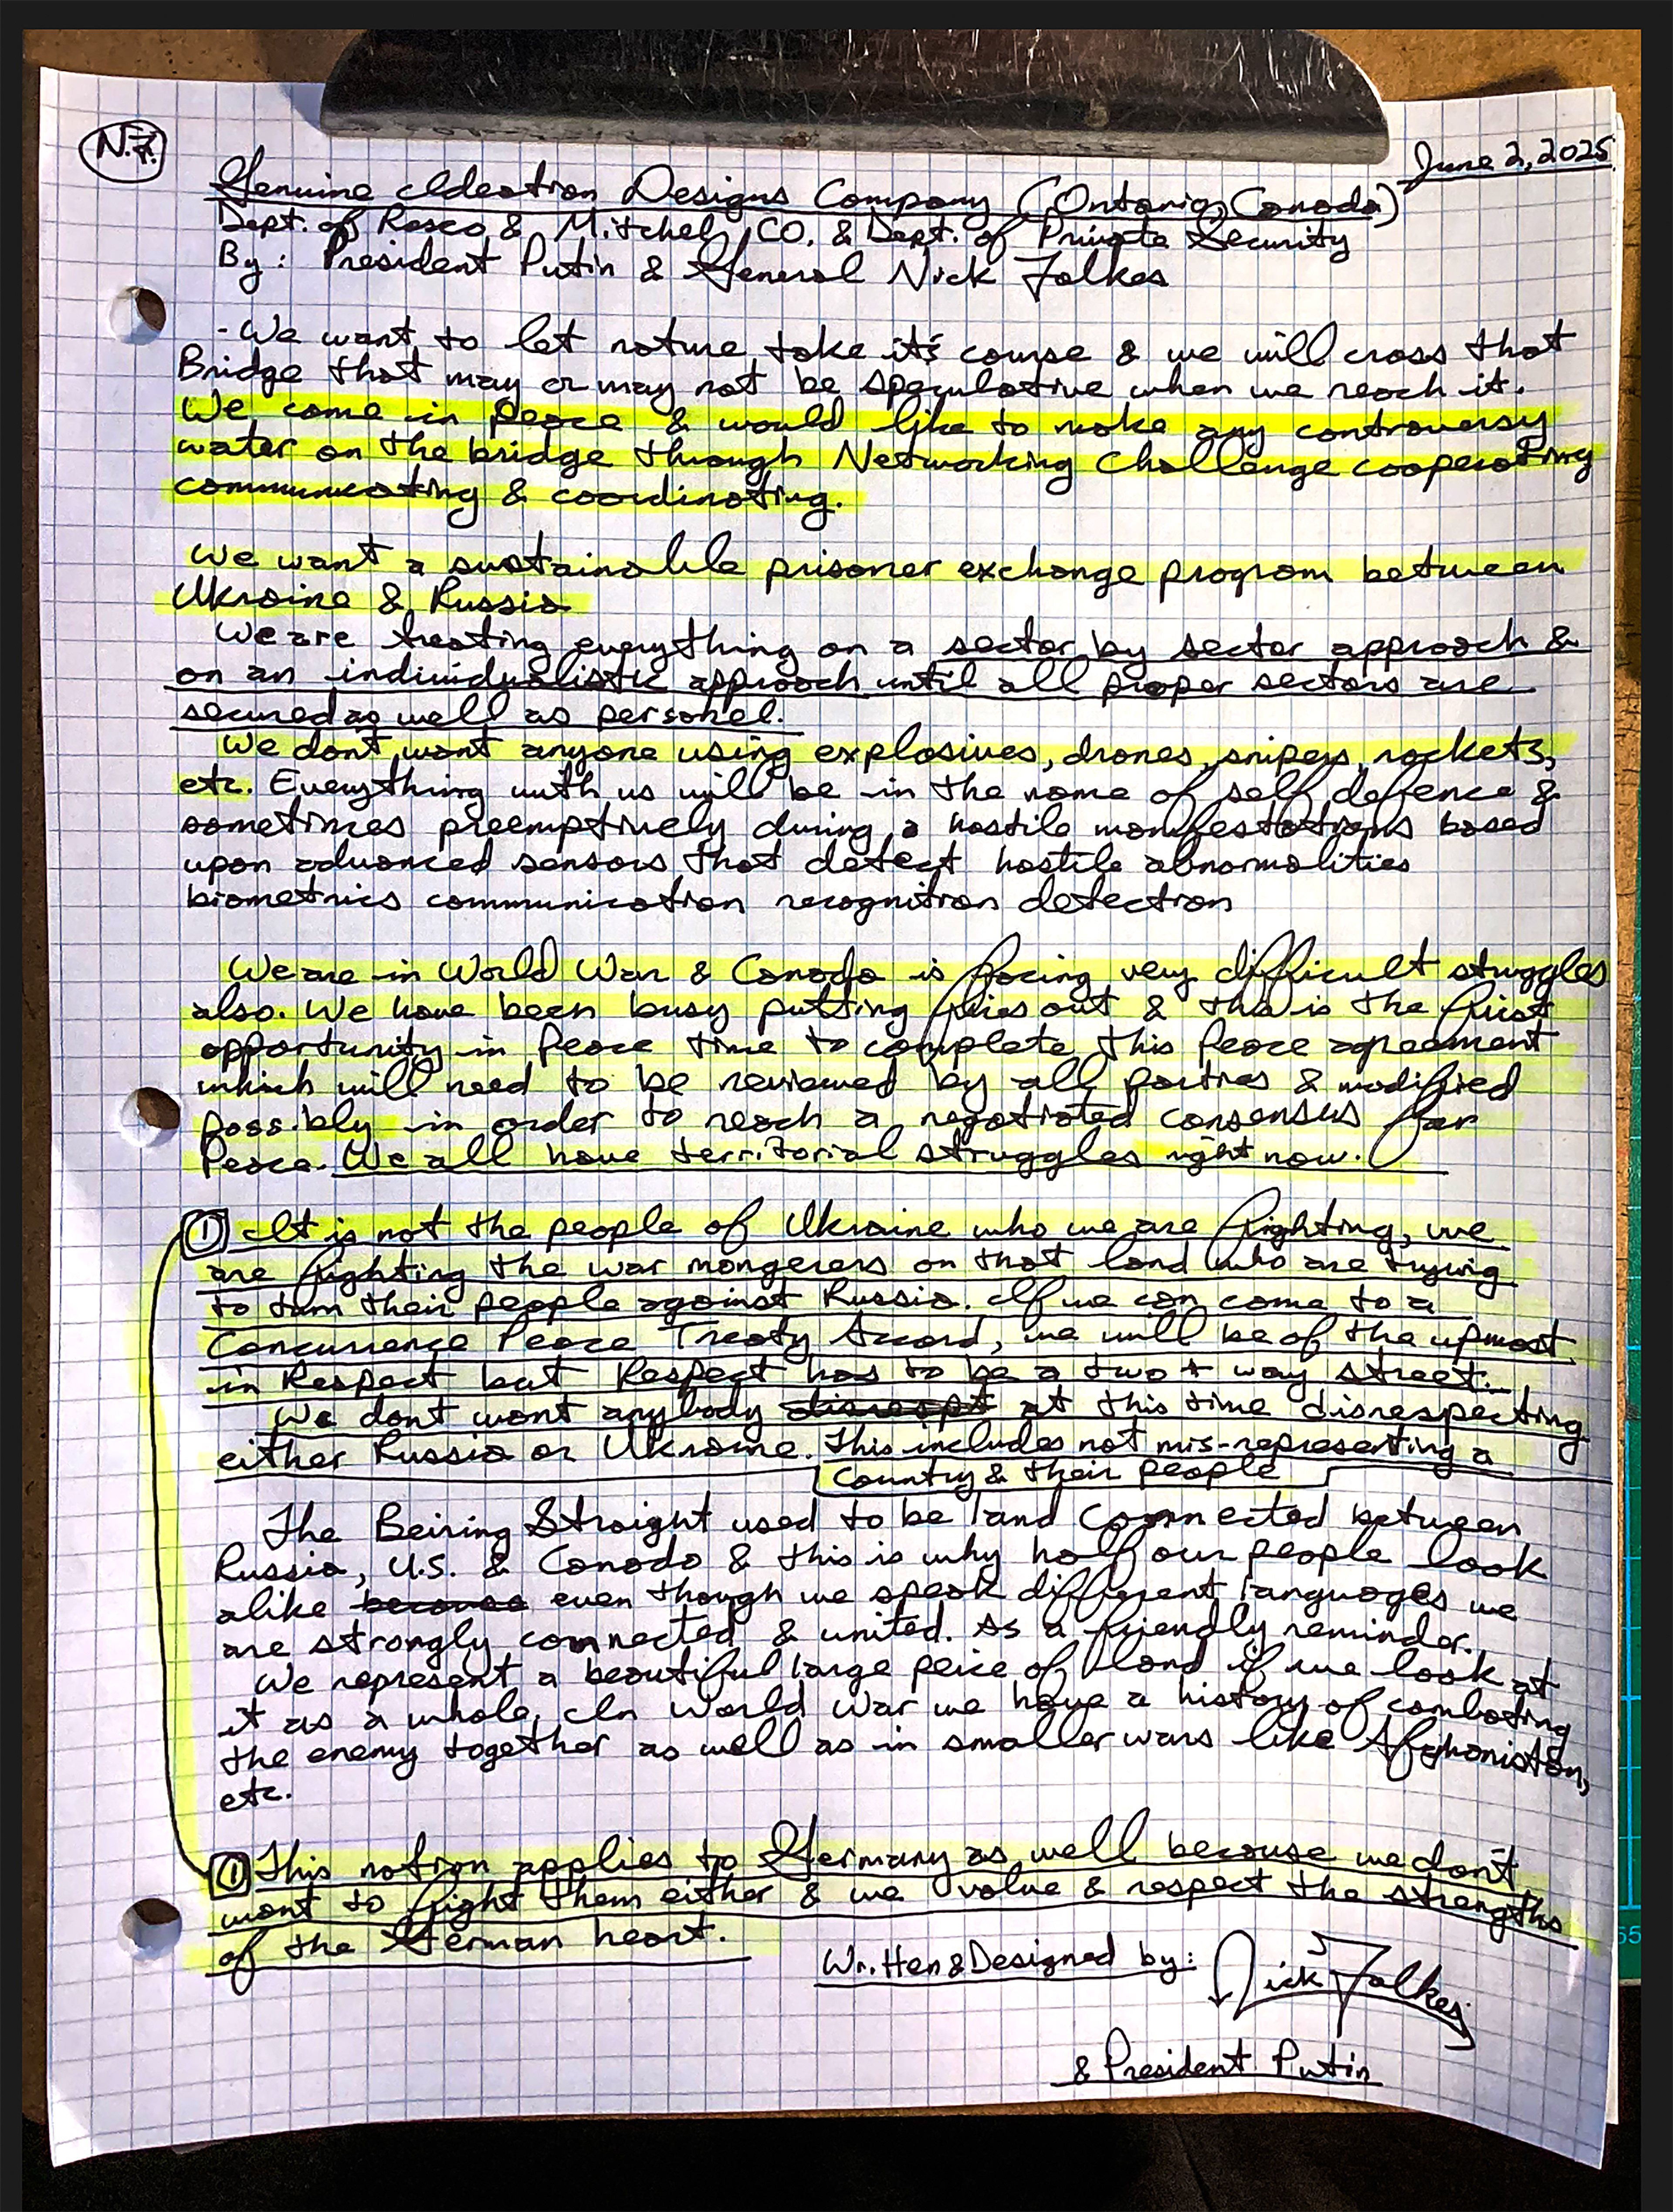 N.F.
June 2, 2025
Genuine Ideation Designs Company (Ontario, Canada)
Dept. of Rosco & Mitchel CO. & Dept. of Private Security
By: President Putin & General Nick Folkes
- We want to let nature take it's course & we will cross that
Bridge that may or may not be speculative when we reach it.
We come in peace & would like to make any controversy
water on the bridge through Networking Challenge cooperating
communicating & coordinating.
We want a sustainable prisoner exchange program between
Ukraine & Russia
We are treating everything on a sector by sector approach &
on an individualistic approach until all proper sectors are
secured as well as personel.
We dont want anyone using explosives, drones, snipers, rockets,
etc. Everything with us will be in the name of self defence &
sometimes preemptively during a hostile manifestations based
upon advanced sensors that detect hostile abnormalities
biometrics communication recognition detection
We are in World War & Canada is facing very difficult struggles
also. We have been busy putting fires out & this is the first
opportunity in Peace time to complete this Peace agreement
which will need to be reviewed by all parties & modified
possibly in order to reach a negotiated consensus for
Peace. We all have territorial struggles right now.
① It is not the people of Ukraine who we are fighting, we
are fighting the war mongerers on that land who are trying
to turn their people against Russia. If we can come to a
Concurrence Peace Treaty Accord, we will be of the upmost
in Respect but Respect has to be a two + way street.
We dont want anybody at this time disrespecting
either Russia or Ukraine. This includes not mis-representing a
country & their people
The Beiring Straight used to be land connected between
Russia, U.S. & Canada & this is why half our people look
alike because even though we speak different languages we
are strongly connected & united. As a friendly reminder.
We represent a beautiful large peice of land if we look at
it as a whole. In World War we have a history of combating
the enemy together as well as in smaller wars like Afghanistan,
etc.
① This notion applies to Germany as well because we don't
want to fight them either & we value & respect the strengths
of the German heart.
Written & Designed by: Nick Folkes
& President Putin